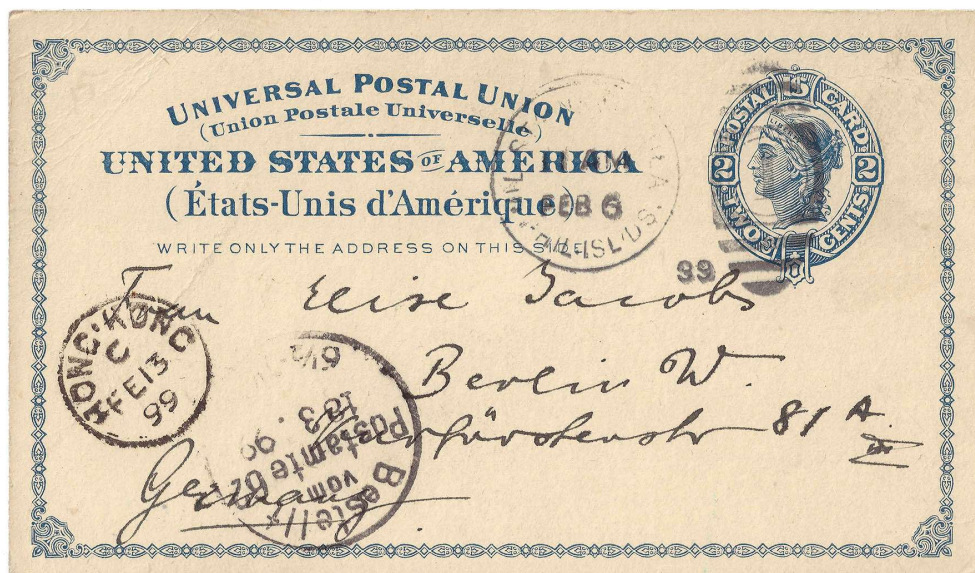 UNIVERSAL POSTAL UNION
(Union Postale Universelle)
UNITED STATES OF AMERICA
(États-Unis d'Amérique.)
WRITE ONLY THE ADDRESS ON THIS SIDE.
POSTAL CARD
2 2
TWO CENTS
FEB 6
PHIL. ISL'DS.
99
Frau Elise Jacobs
Berlin W.
Kurfürstenstr 81 A
Germany
HONG KONG
C
FE 13
99
Bestellt
vom
Postamte